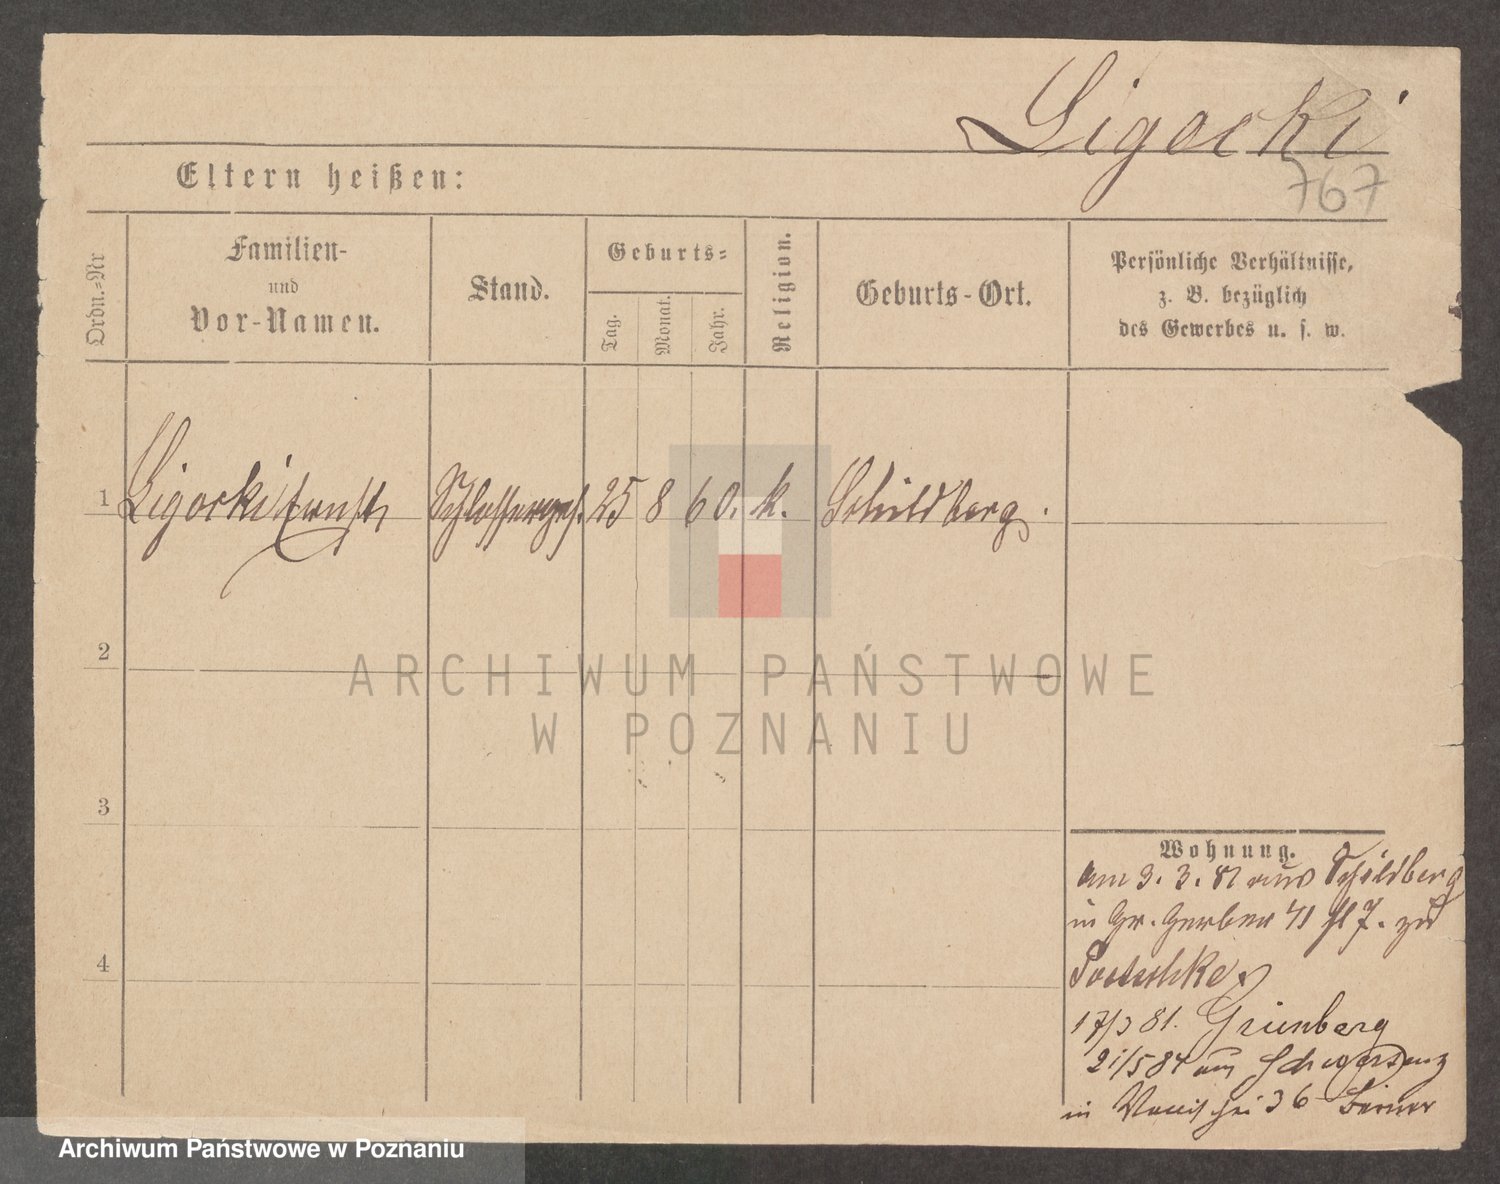 Ligocki
767
Eltern heißen:
Ordn.=Nr
Familien-
und
Vor-Namen.
Stand.
Geburts=
Tag.
Monat.
Jahr.
Religion.
Geburts-Ort.
Persönliche Verhältnisse,
z. B. bezüglich
des Gewerbes u. s. w.
1 Ligocki Ernst Schlosserges. 25 8 60. k. Schildberg.
2
3
4
ARCHIWUM PAŃSTWOWE
W POZNANIU
Wohnung.
am 3. 3. 81 aus Schildberg
in Gr. Gerber 41 zu
17/3 81. Grünberg
21/5 84 aus Schwersenz
in 36
Archiwum Państwowe w Poznaniu